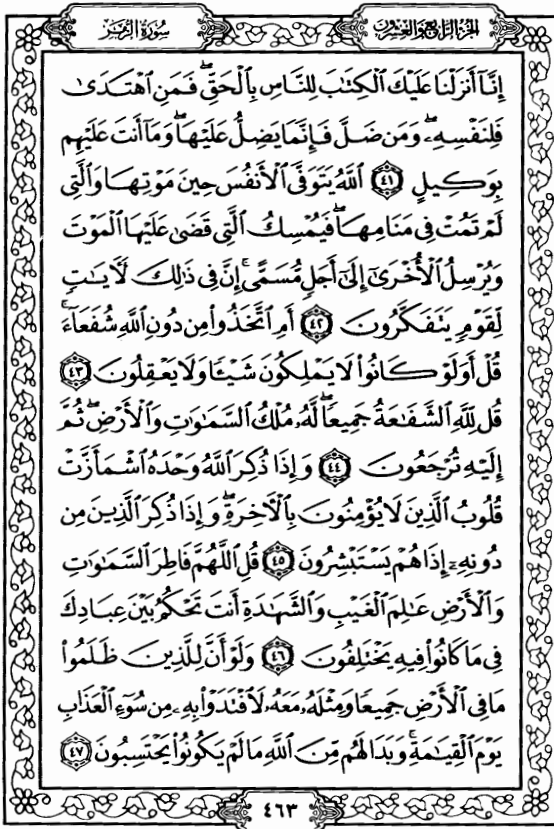 سُورَةُ الزُّمَرِ
الجُزْءُ الرَّابِعُ وَالعِشْرُونَ
إِنَّآ أَنزَلْنَا عَلَيْكَ ٱلْكِتَٰبَ لِلنَّاسِ بِٱلْحَقِّۖ فَمَنِ ٱهْتَدَىٰ
فَلِنَفْسِهِۦۖ وَمَن ضَلَّ فَإِنَّمَا يَضِلُّ عَلَيْهَاۖ وَمَآ أَنتَ عَلَيْهِم
بِوَكِيلٍ ٤١ ٱللَّهُ يَتَوَفَّى ٱلْأَنفُسَ حِينَ مَوْتِهَا وَٱلَّتِى
لَمْ تَمُتْ فِى مَنَامِهَاۖ فَيُمْسِكُ ٱلَّتِى قَضَىٰ عَلَيْهَا ٱلْمَوْتَ
وَيُرْسِلُ ٱلْأُخْرَىٰٓ إِلَىٰٓ أَجَلٍ مُّسَمًّىۚ إِنَّ فِى ذَٰلِكَ لَءَايَٰتٍ
لِّقَوْمٍ يَتَفَكَّرُونَ ٤٢ أَمِ ٱتَّخَذُوا۟ مِن دُونِ ٱللَّهِ شُفَعَآءَۚ
قُلْ أَوَلَوْ كَانُوا۟ لَا يَمْلِكُونَ شَيْـًٔا وَلَا يَعْقِلُونَ ٤٣
قُل لِّلَّهِ ٱلشَّفَٰعَةُ جَمِيعًاۖ لَّهُۥ مُلْكُ ٱلسَّمَٰوَٰتِ وَٱلْأَرْضِۖ ثُمَّ
إِلَيْهِ تُرْجَعُونَ ٤٤ وَإِذَا ذُكِرَ ٱللَّهُ وَحْدَهُ ٱشْمَأَزَّتْ
قُلُوبُ ٱلَّذِينَ لَا يُؤْمِنُونَ بِٱلْءَاخِرَةِۖ وَإِذَا ذُكِرَ ٱلَّذِينَ مِن
دُونِهِۦٓ إِذَا هُمْ يَسْتَبْشِرُونَ ٤٥ قُلِ ٱللَّهُمَّ فَاطِرَ ٱلسَّمَٰوَٰتِ
وَٱلْأَرْضِ عَٰلِمَ ٱلْغَيْبِ وَٱلشَّهَٰدَةِ أَنتَ تَحْكُمُ بَيْنَ عِبَادِكَ
فِى مَا كَانُوا۟ فِيهِ يَخْتَلِفُونَ ٤٦ وَلَوْ أَنَّ لِلَّذِينَ ظَلَمُوا۟
مَا فِى ٱلْأَرْضِ جَمِيعًا وَمِثْلَهُۥ مَعَهُۥ لَٱفْتَدَوْا۟ بِهِۦ مِن سُوٓءِ ٱلْعَذَابِ
يَوْمَ ٱلْقِيَٰمَةِۚ وَبَدَا لَهُم مِّنَ ٱللَّهِ مَا لَمْ يَكُونُوا۟ يَحْتَسِبُونَ ٤٧
٤٦٣